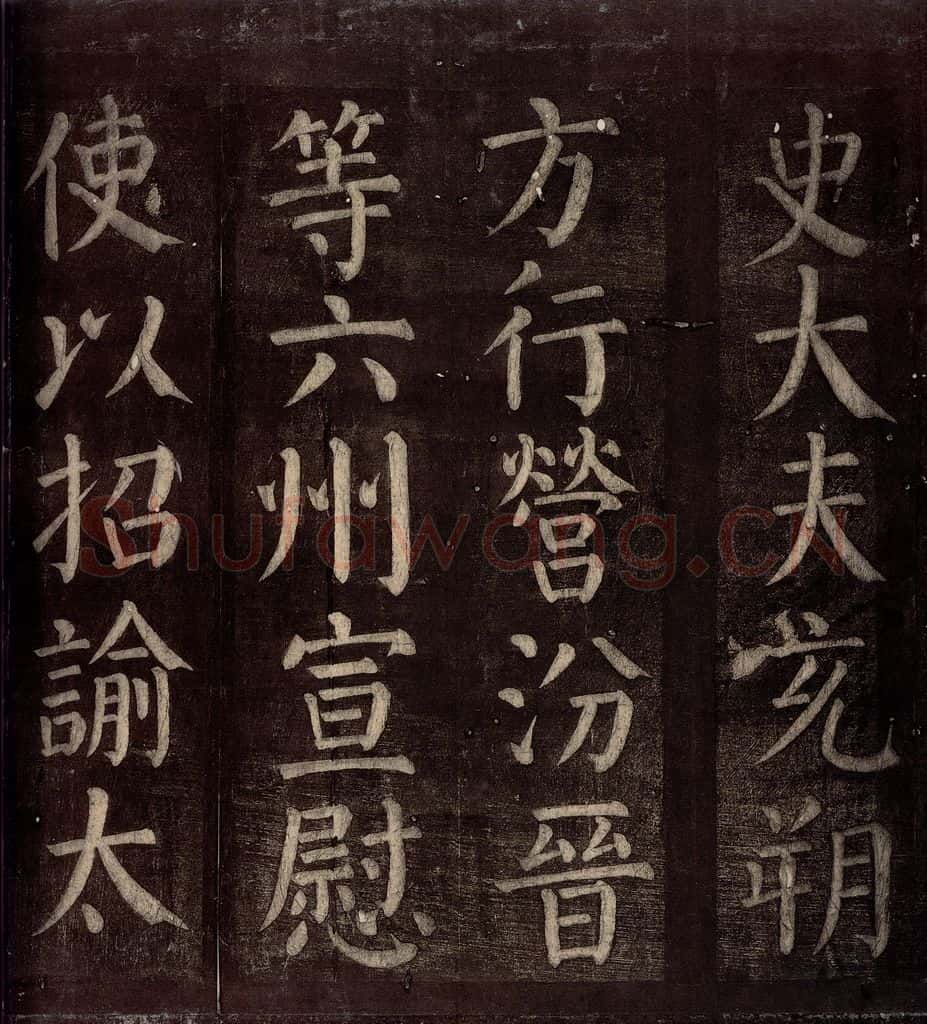 史大夫充朔
方行營汾晉
等六州宣慰
使以招諭太
Shufawang.CN